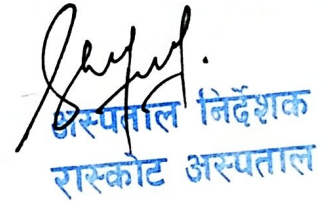 अस्पताल निर्देशक
रास्कोट अस्पताल